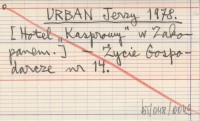 URBAN Jerzy 1978.
[Hotel "Kasprowy" w Zako-
panem.] Życie Gospo-
darcze nr 14.